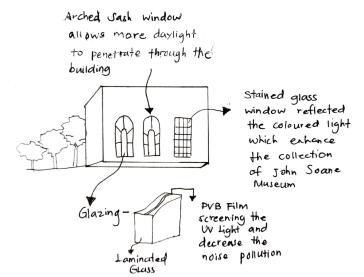 Arched Sash window
allows more daylight
to penetrate through the
building
Stained glass
window reflected
the coloured light
which enhance
the collection
of John Soane
Museum
Glazing
PVB Film
screening the
UV Light and
decrease the
noise pollution
Laminated
Glass